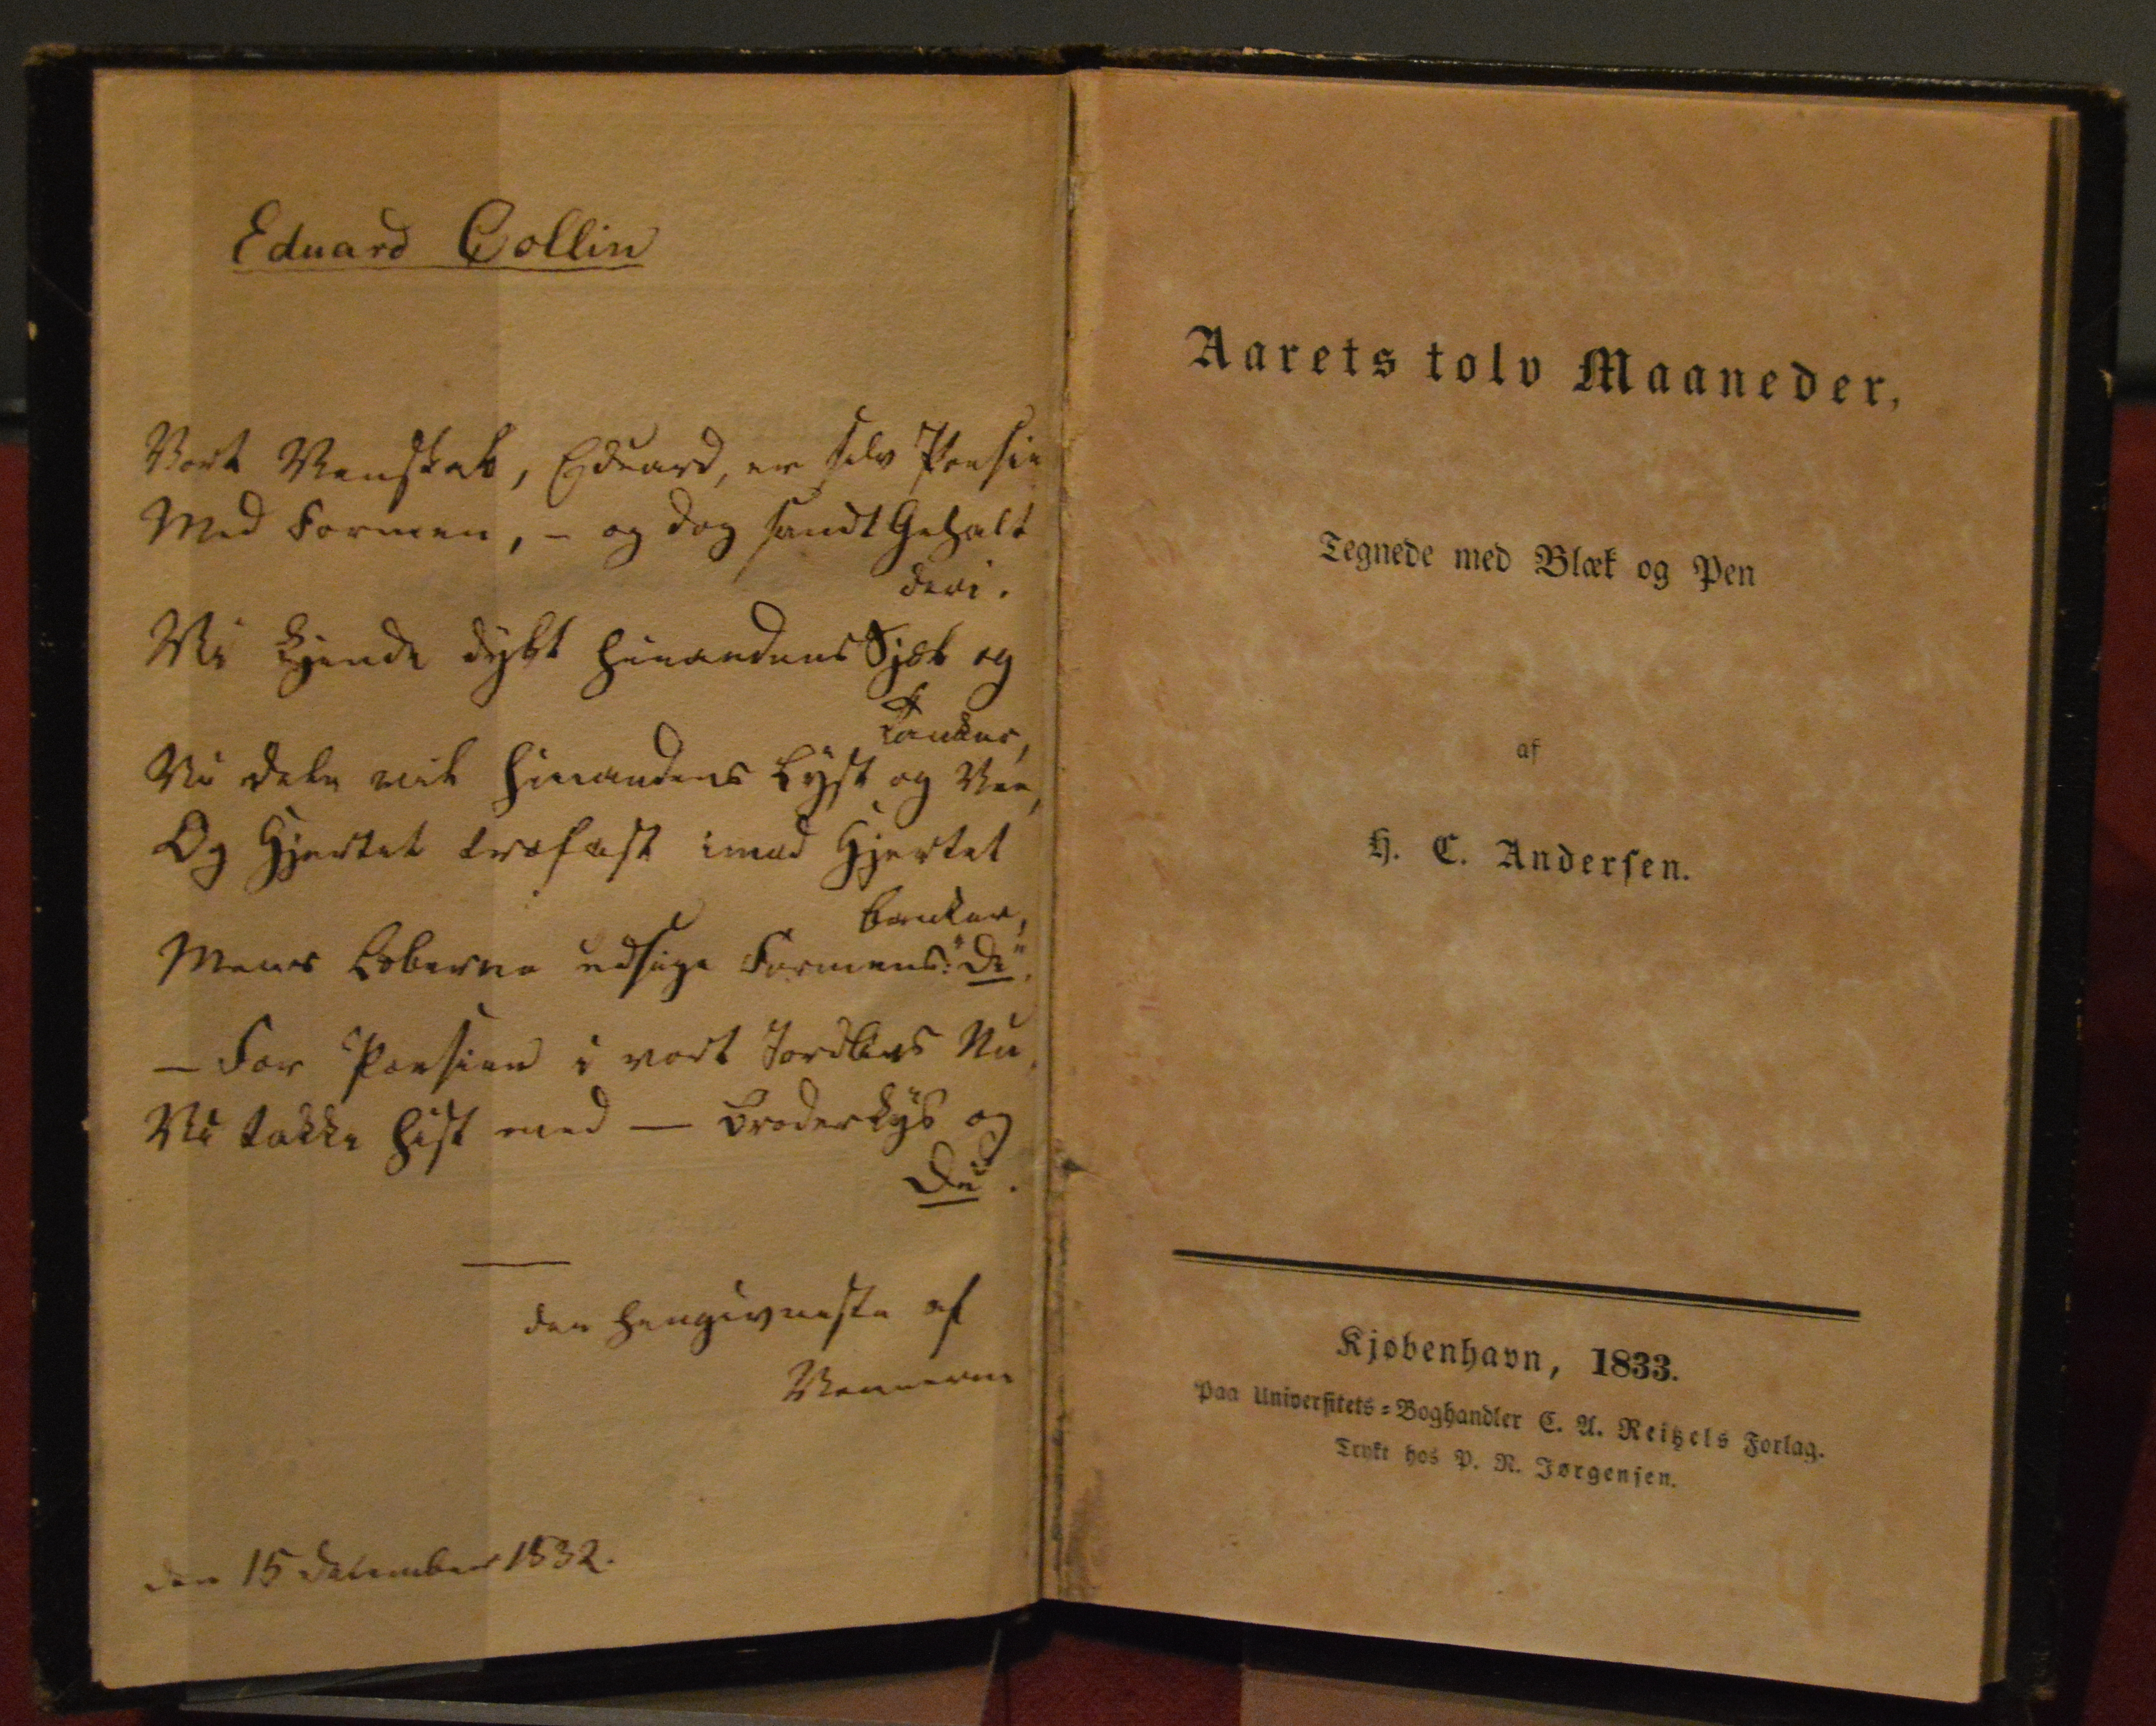 Eduard Collin
Vort Venskab, Eduard, er selv Poesie
Med Formen, – og dog sandt Gehalt
deri.
Vi kjende dybt hinandens Sjæl og
Tanker,
Vi dele vil hinandens Lyst og Vee,
Og Hjertet trofast imod Hjertet
banker,
Mens Læberne udsige Formens: "De".
– For Poesien i vort Jordlivs Nu,
Vi takke hist med – Broderkys og
Du.
den hengivneste af
Vennerne
den 15 December 1832.
Aarets tolv Maaneder,
Tegnede med Blæk og Pen
af
H. C. Andersen.
Kjøbenhavn, 1833.
Paa Universitets-Boghandler C. A. Reitzels Forlag.
Trykt hos P. N. Jørgensen.